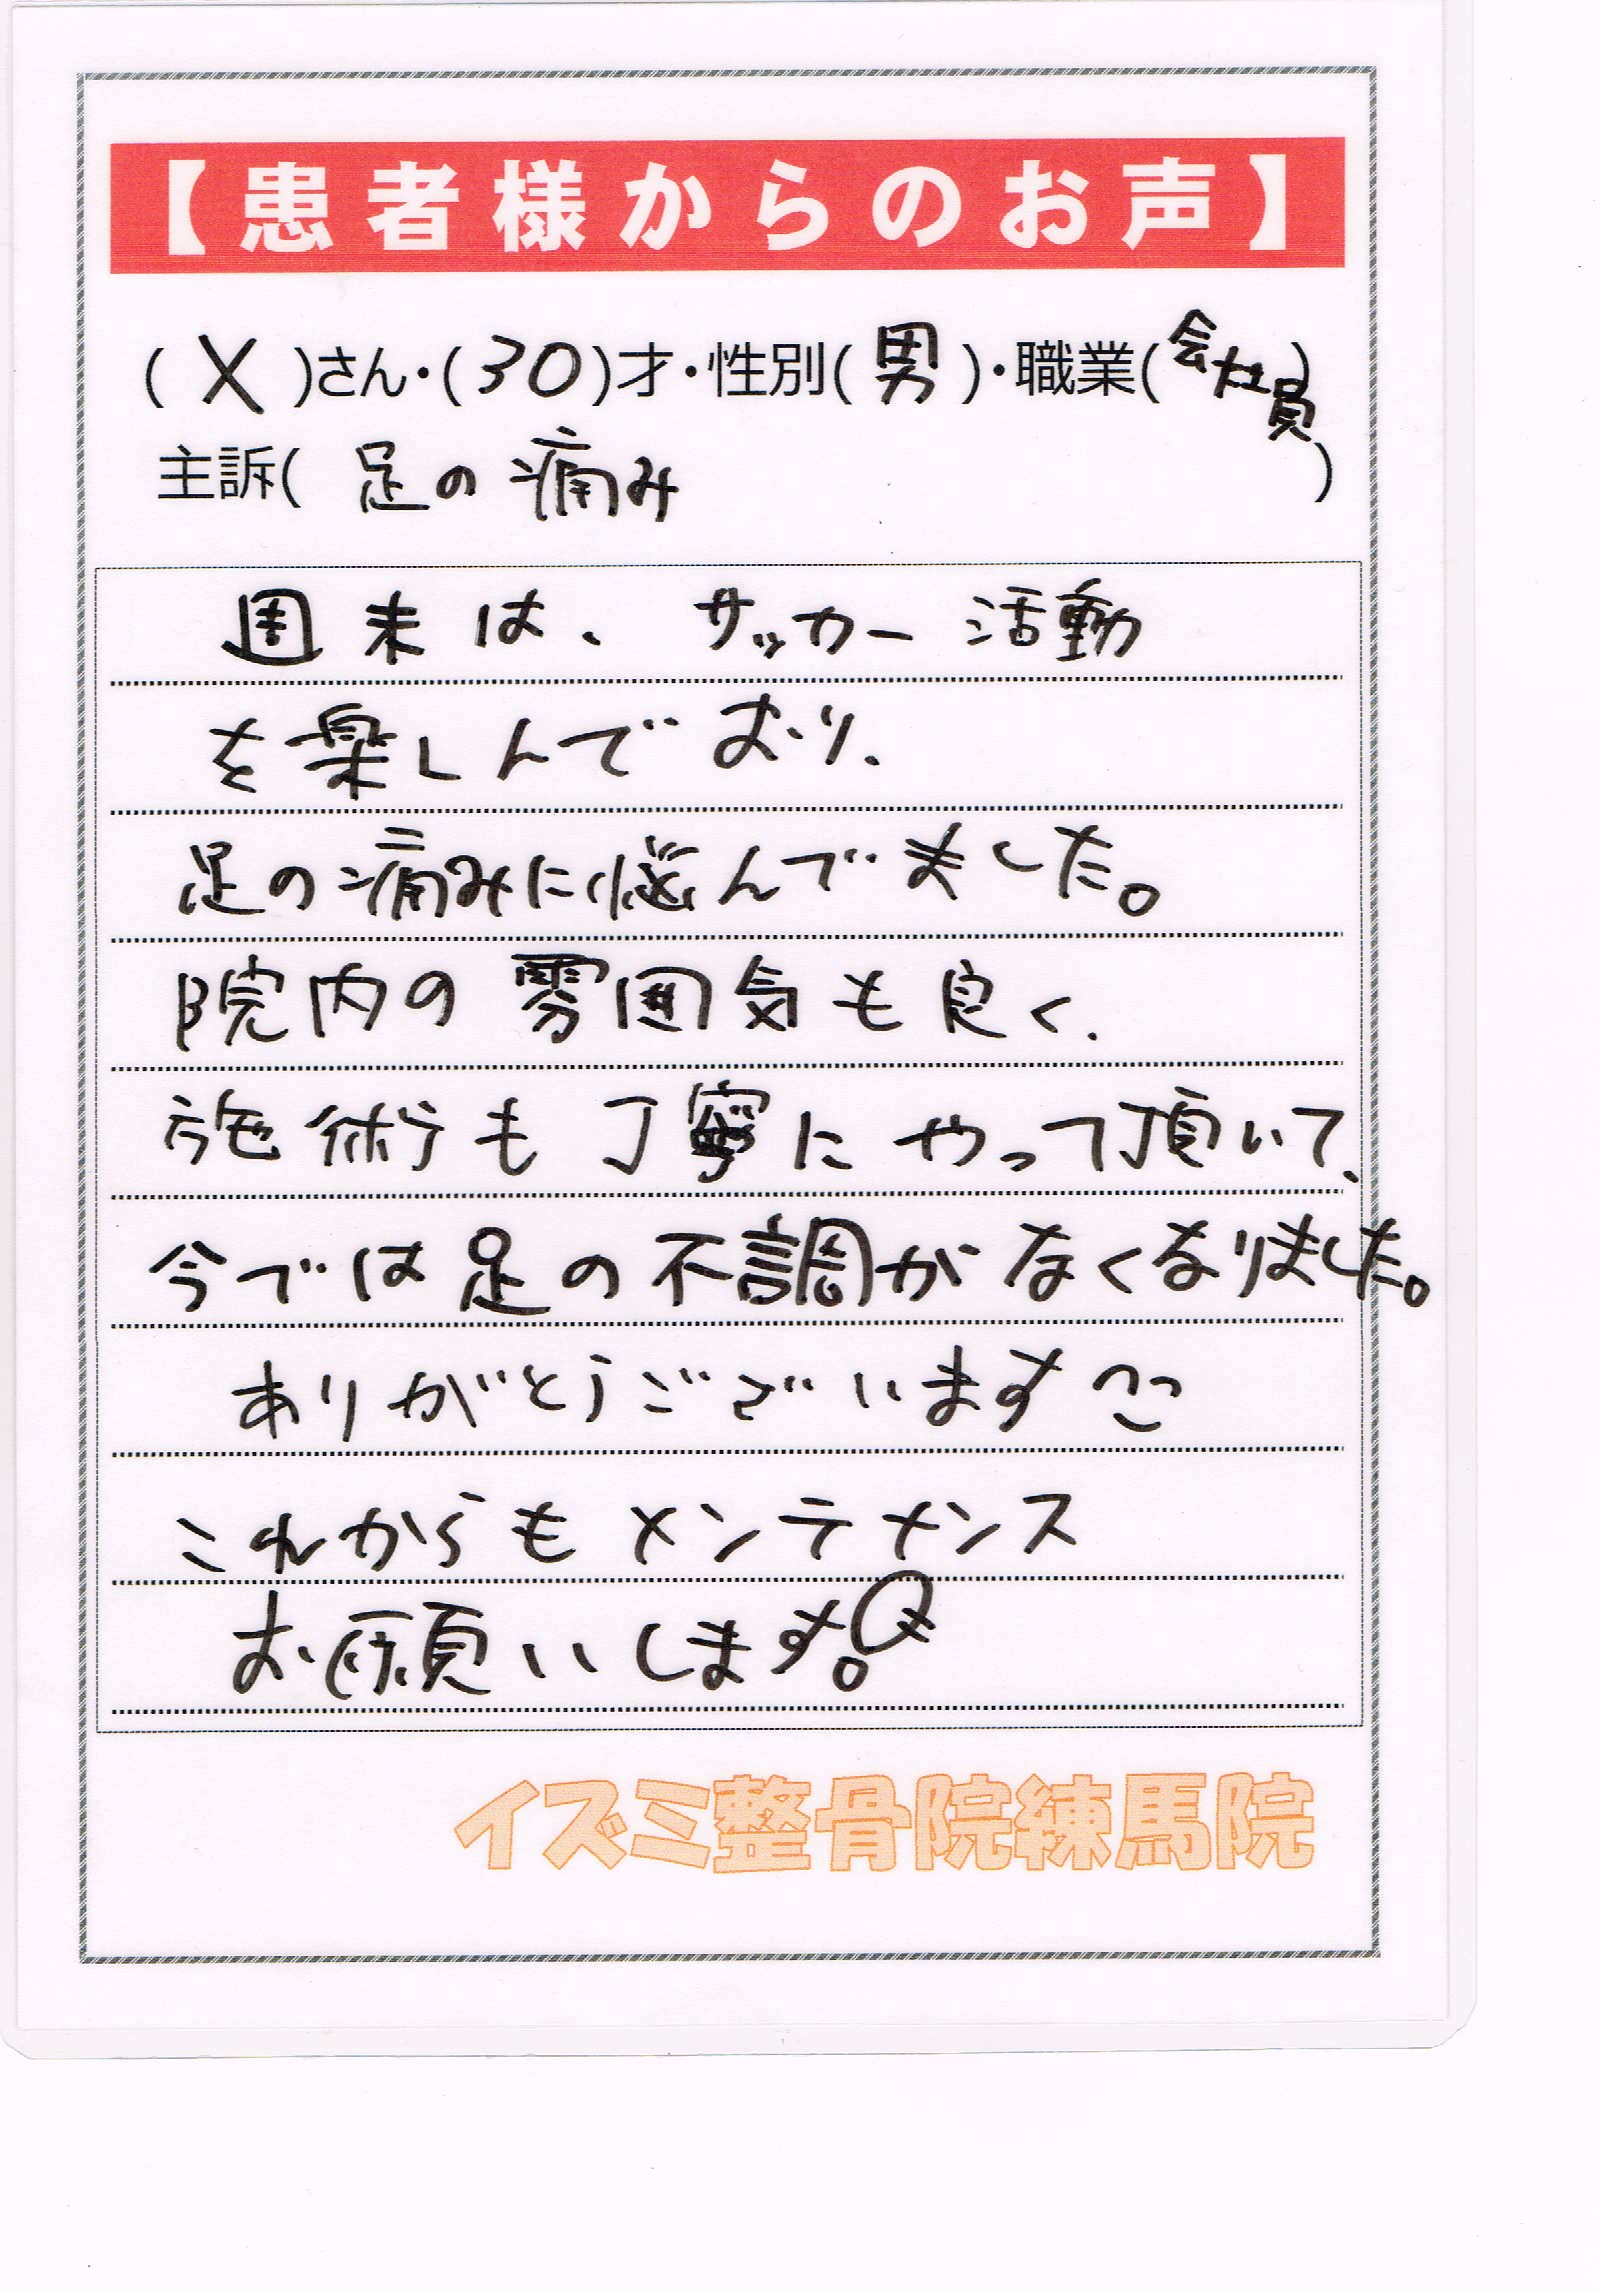 【患者様からのお声】
( X )さん・( 30 )才・性別( 男 )・職業( 会社員 )
主訴( 足の痛み )
週末は、サッカー活動
を楽しんでおり、
足の痛みに悩んでました。
院内の雰囲気も良く、
施術も丁寧にやって頂いて、
今では足の不調がなくなりました。
ありがとうございます
これからもメンテナンス
お願いします。
イズミ整骨院練馬院